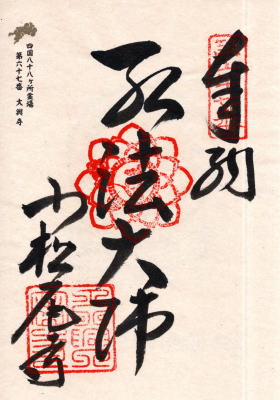 奉納
弘法大師
小松尾寺
四国八十八ヶ所霊場
第六十七番 大興寺